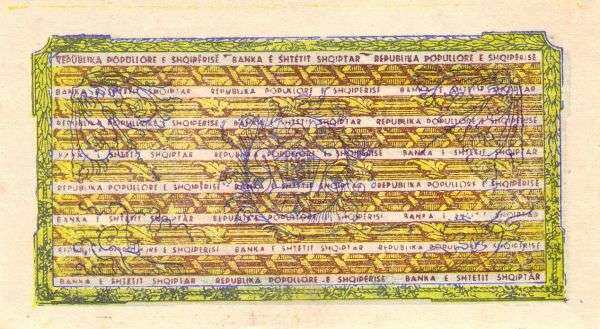 REPUBLIKA POPULLORE E SHQIPËRISË BANKA E SHTETIT SHQIPTAR REPUBLIKA POPULLORE E SHQIPËRISË
BANKA E SHTETIT SHQIPTAR REPUBLIKA POPULLORE E SHQIPERISI BANKA E
REPUBLIKA POPULLORE E SHQIPERISE BANKA E SHTETIT SHQIPTAR REPUBLIKA POPULLORE E SHQIPERISE
BANKA E SHTETIT SHQIPTAR REPUBLIKA POPULLORE E SHQIPERISË BANKA E SHTETIT SHQIPTAR
REPUBLIKA POPULLORE E SHQIPERISË BANKA E SHTETIT SHQIPTAR REPUBLIKA POPULLORE E SHQIPERISË
BANKA E SHTETIT SHQIPTAR REPUBLIKA POPULLORE E SHQIPERISI BANKA E SHTETIT SHQIPTAR
REPUBLIKA POPULLORE E SHQIPERISI BANKA E SHTETIT SHQIPTAR REPUBLIKA POPULLORE E SHQIPERISE
BANKA E SHTETIT SHQIPTAR REPUBLIKA POPULLORE E SHQIPERISE BANKA E SHTETIT SHQIPTAR